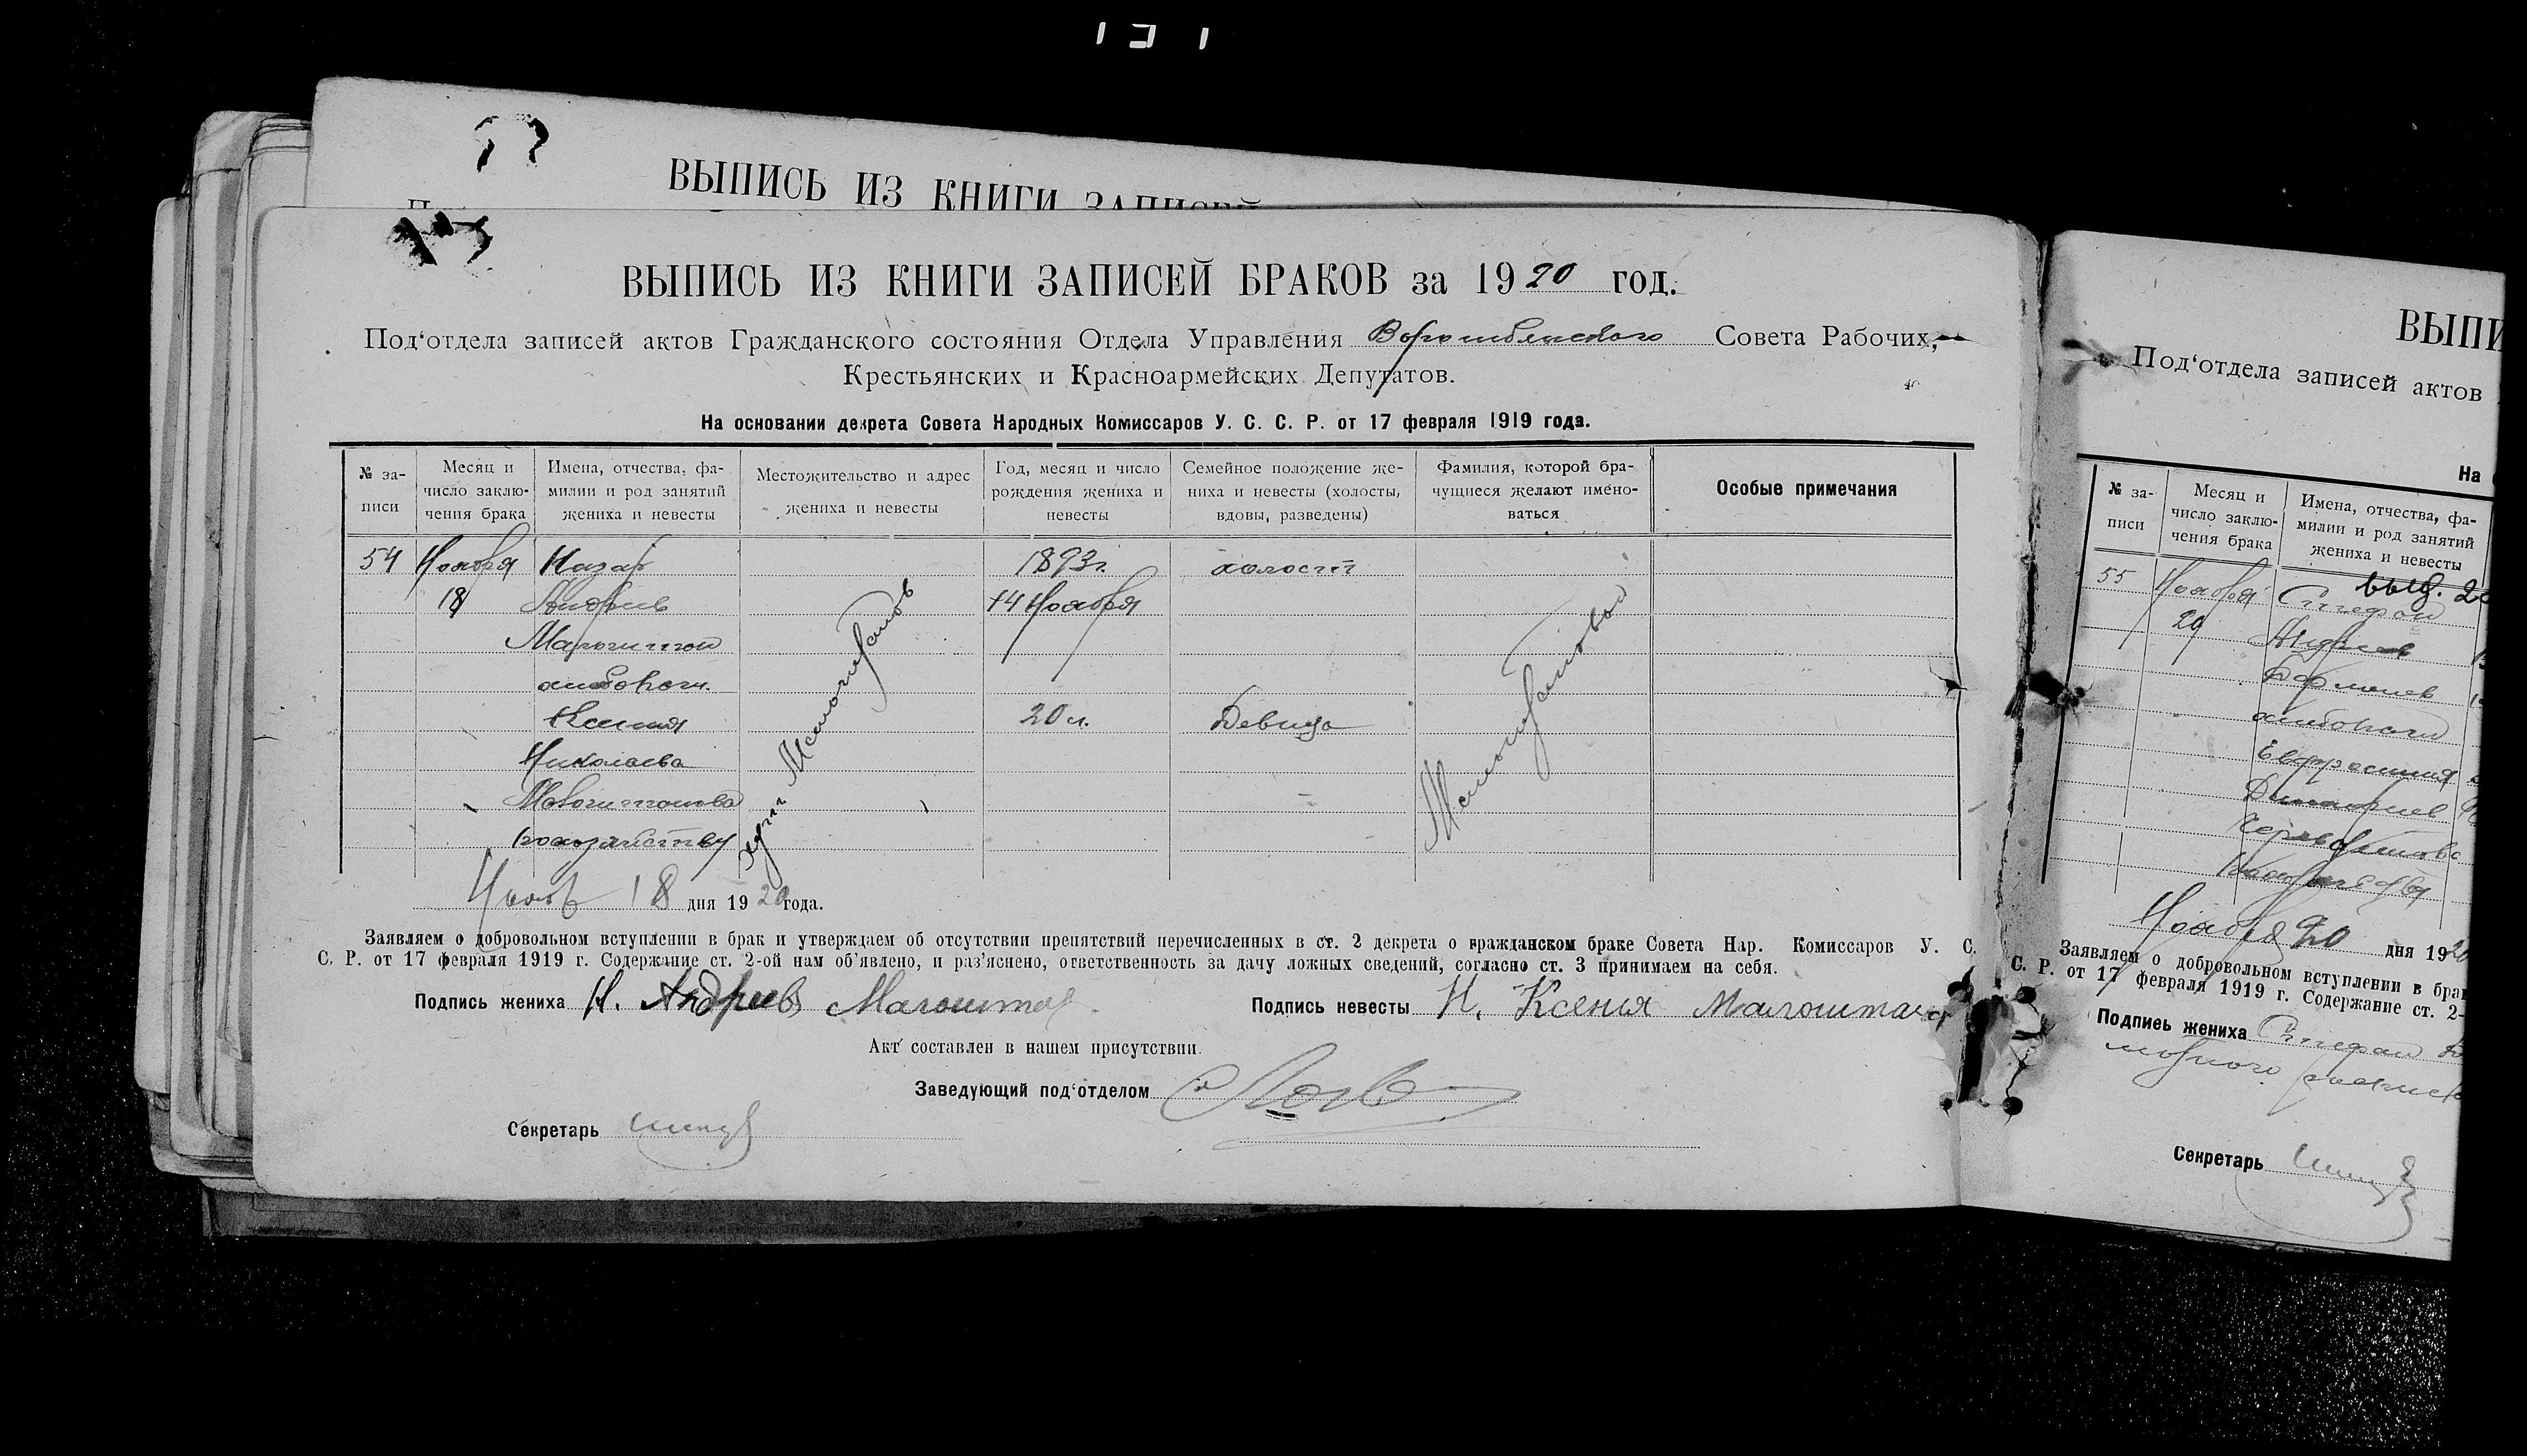 ВЫПИСЬ ИЗ КНИГИ ЗАПИСЕЙ
ВЫПИСЬ ИЗ КНИГИ ЗАПИСЕЙ БРАКОВ за 1920 год.
Под‘отдела записей актов Гражданского состояния Отдела Управления Ворожбянского Совета Рабочих,
Крестьянских и Красноармейских Депутатов.
На основании декрета Совета Народных Комиссаров У. С. С. Р. от 17 февраля 1919 года.
№ за-
писи
Месяц и
число заклю-
чения брака
Имена, отчества, фа-
милии и род занятий
жениха и невесты
Местожительство и адрес
жениха и невесты
Год, месяц и число
рождения жениха и
невесты
Семейное положение же-
ниха и невесты (холосты,
вдовы, разведены)
Фамилия, которой бра-
чущиеся желают имено-
ваться
Особые примечания
54 Ноября Назар 1893г. холост
18 Андреев 14 Ноября
хлебопаш.
Ксения 20 л. Девица
Николаева
18 дня 1920 года.
Заявляем о добровольном вступлении в брак и утверждаем об отсутствии препятствий перечисленных в ст. 2 декрета о гражданском браке Совета Нар. Комиссаров У. С.
С. Р. от 17 февраля 1919 г. Содержание ст. 2-ой нам об’явлено, и раз’яснено, ответственность за дачу ложных сведений, согласно ст. 3 принимаем на себя.
Подпись жениха Н. Андреев Малоштан
Подпись невесты Н. Ксения Малоштан
Акт составлен в нашем присутствии.
Заведующий под‘отделом
Секретарь
ВЫПИ
Под‘отдела записей актов
На
№ за-
писи
Месяц и
число заклю-
чения брака
Имена, отчества, фа-
милии и род занятий
жениха и невесты
55 Ноября Стефан
выд.
20 Андреев
Евфросиния
Ноября 20 дня 1920
Заявляем о добровольном вступлении в брак
С. Р. от 17 февраля 1919 г. Содержание ст. 2-
Подпись жениха Стефан
Секретарь